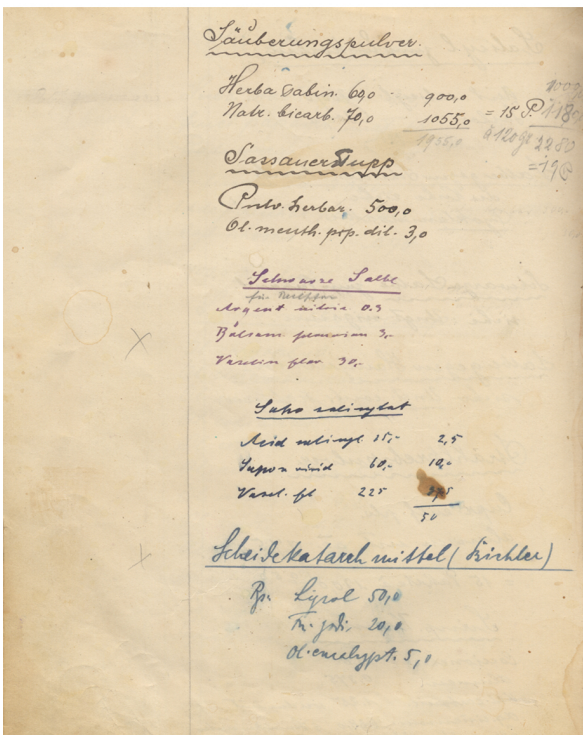 Säuberungspulver.
Herba Sabin. 60,0 900,0
Natr. bicarb. 70,0 1055,0 = 15 P.
1955,0 à 120gr 2280
=19
Stupp
Pulv. herbar. 500,0
Ol. menth. pip. dil. 3,0
Schwarze Salbe
für
Argent nitric 0.3
Bálsam. peruvian 3,-
Vaselin flav 30,-
Sapo salicylat
Acid salicyl 15,- 2,5
Sapon virid 60,- 10,-
Vasel. fl 225
50
Scheidekatarrhmittel (Bichler)
Rp. Lysol 50,0
Tr. jodi. 20,0
Ol. eucalypt. 5,0